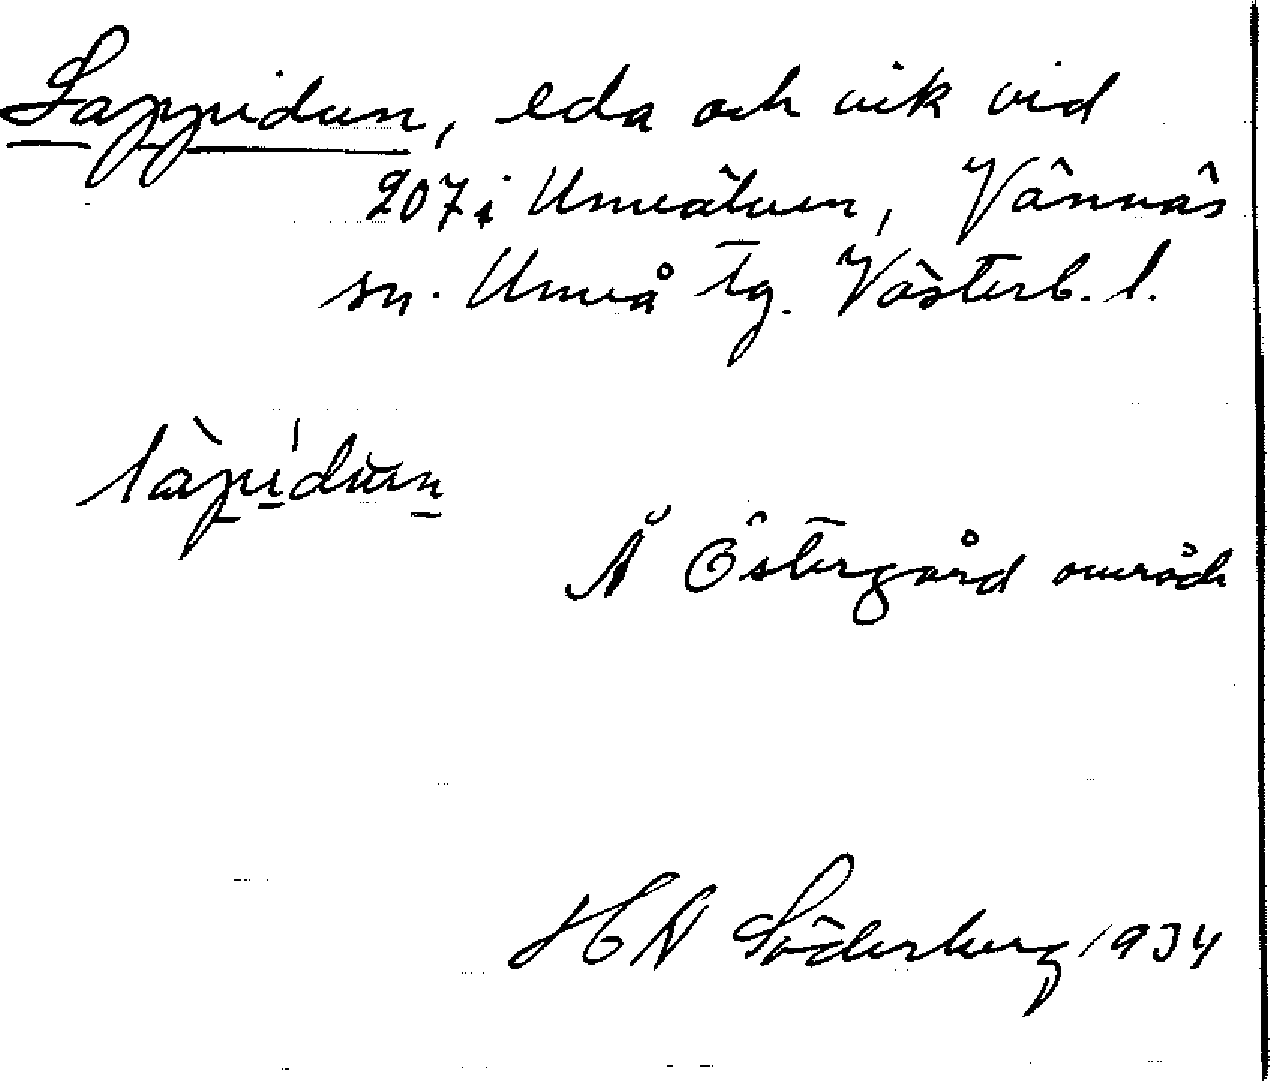 Lappidun, eda och vik vid
207 i Umeälven, Vännäs
sn. Umeå tg. Västerb. l.
làpídun
Å Östergård område
HN Söderberg 1934